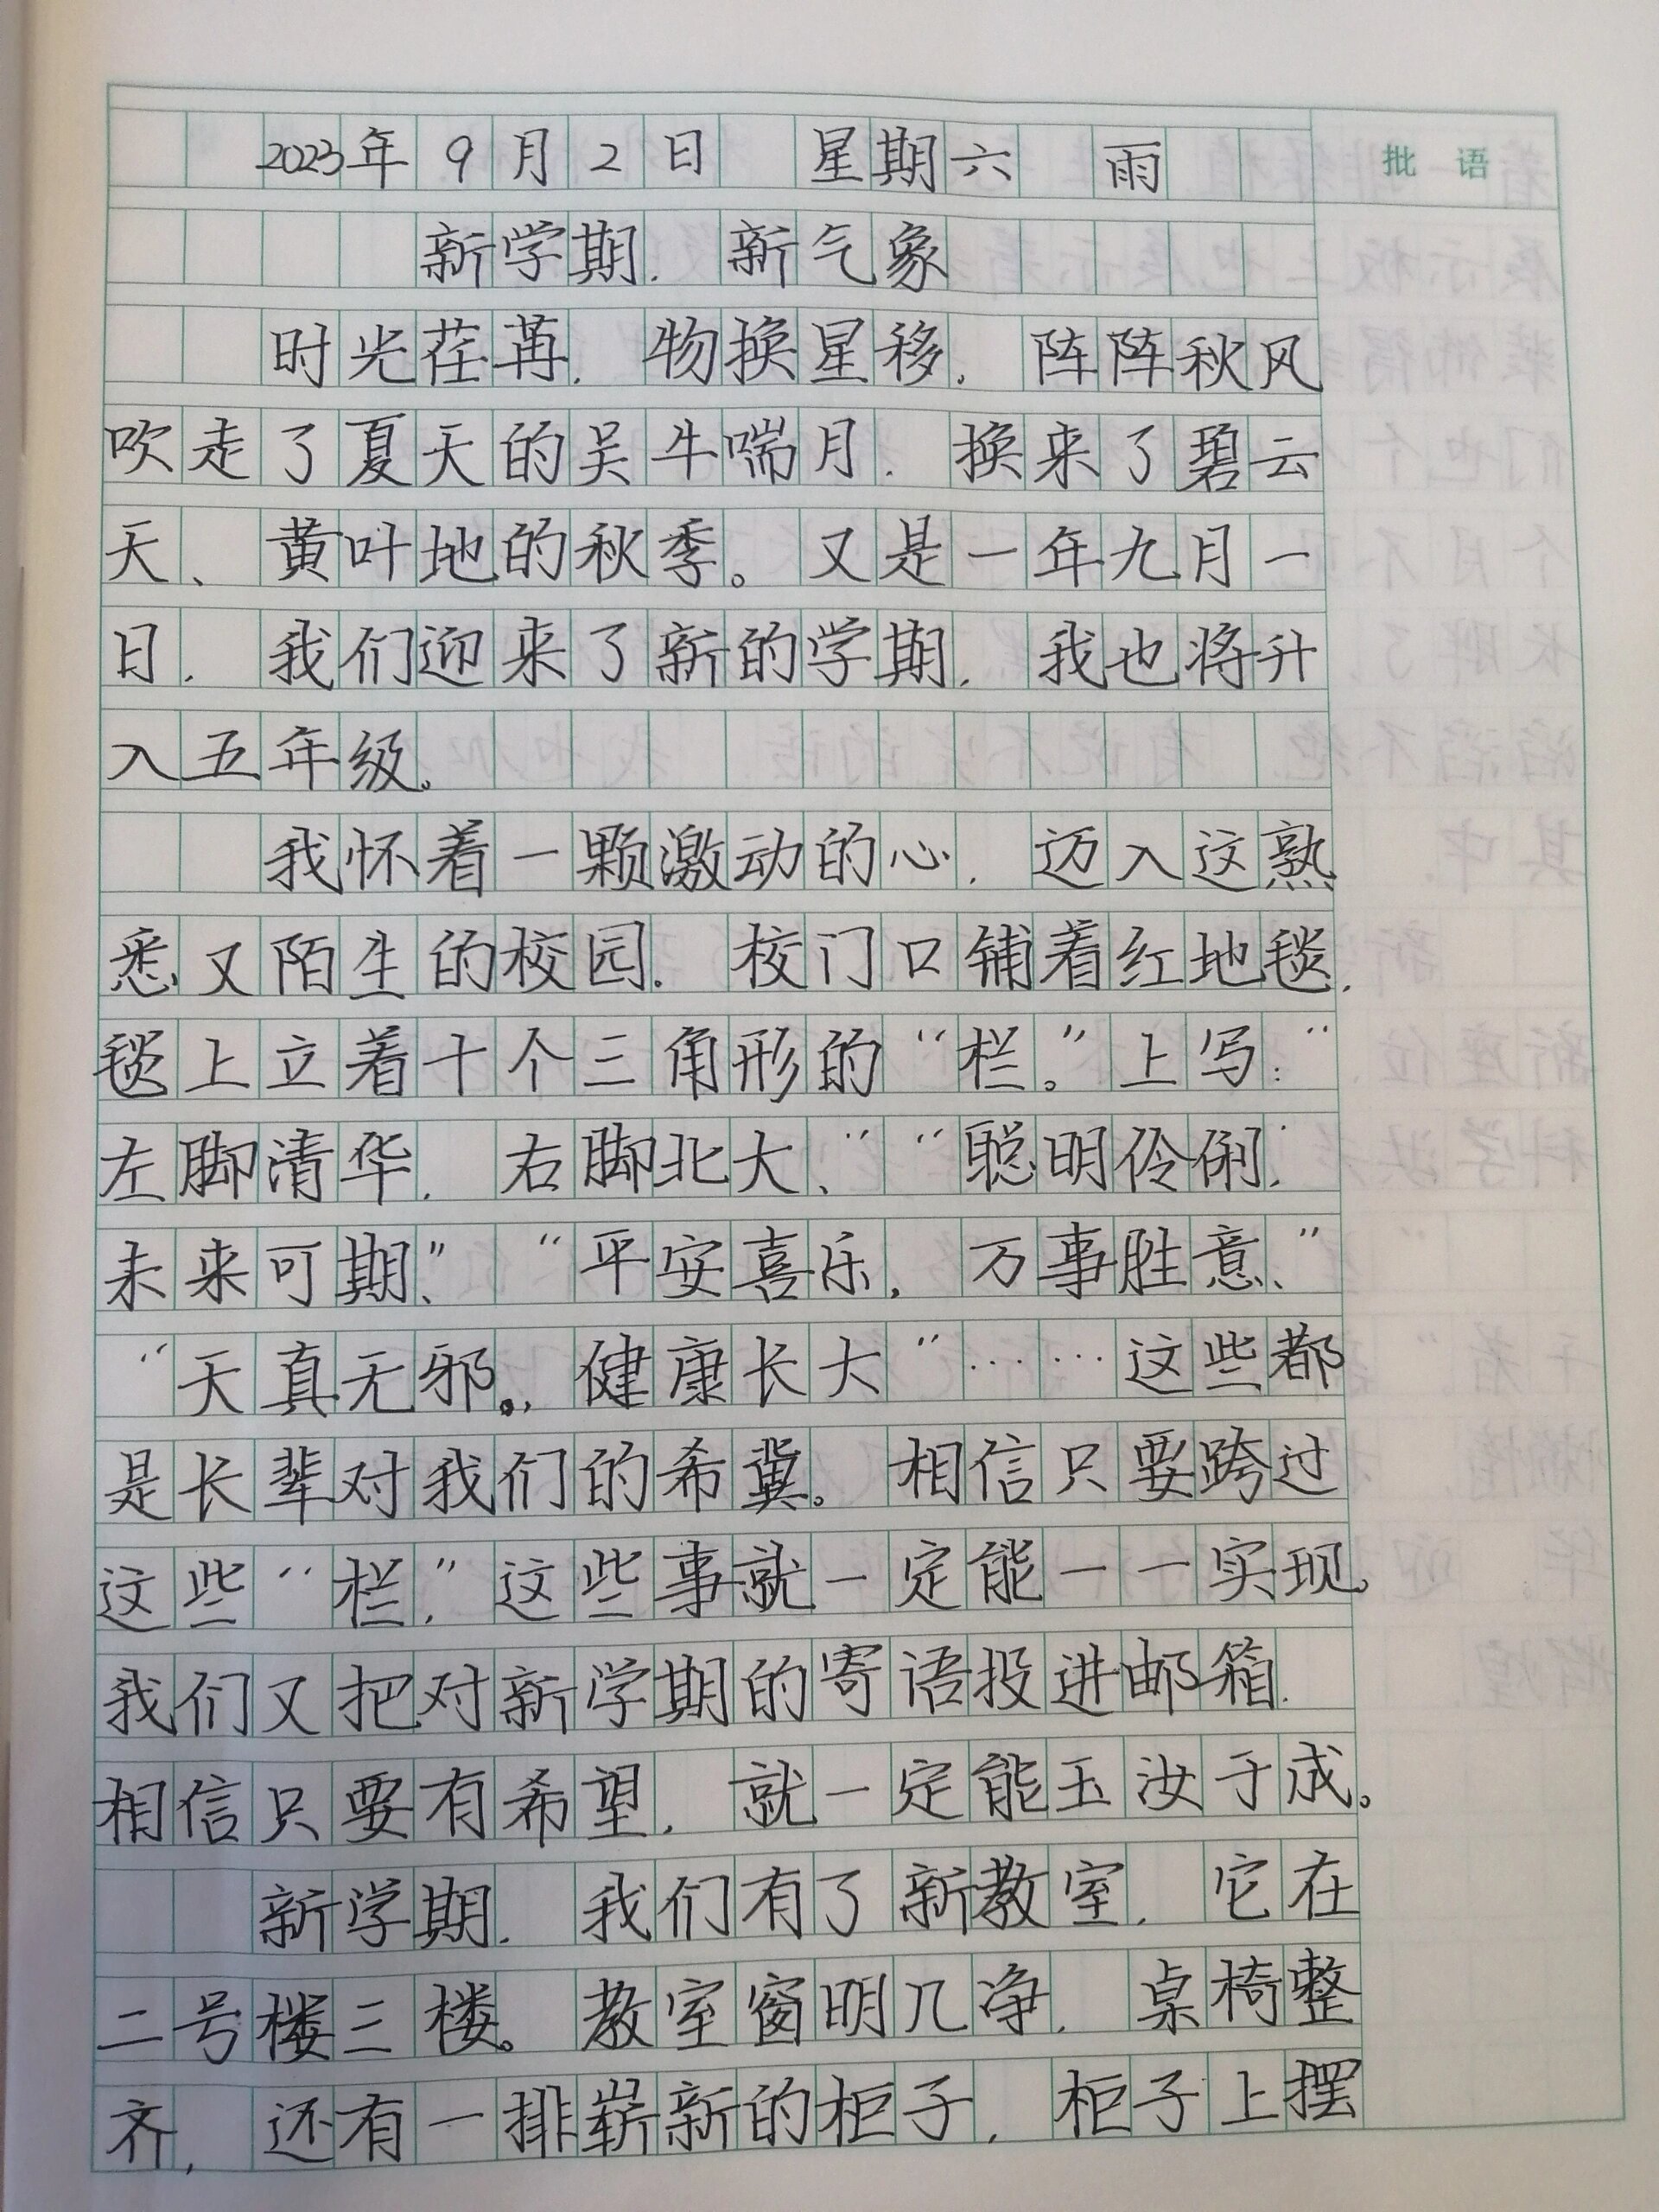 2023年9月2日 星期六 雨
批语
新学期，新气象
时光荏苒，物换星移，阵阵秋风
吹走了夏天的吴牛喘月，换来了碧云
天、黄叶地的秋季。又是一年九月一
日，我们迎来了新的学期，我也将升
入五年级。
我怀着一颗激动的心，迈入这熟
悉又陌生的校园，校门口铺着红地毯，
毯上立着十个三角形的“栏。”上写：“
左脚清华，右脚北大、”“聪明伶俐，
未来可期、”“平安喜乐，万事胜意、”
“天真无邪，健康长大”……这些都
是长辈对我们的希冀。相信只要跨过
这些“栏，”这些事就一定能一一实现。
我们又把对新学期的寄语投进邮箱，
相信只要有希望，就一定能玉汝于成。
新学期，我们有了新教室，它在
二号楼三楼。教室窗明几净，桌椅整
齐，还有一排崭新的柜子，柜子上摆